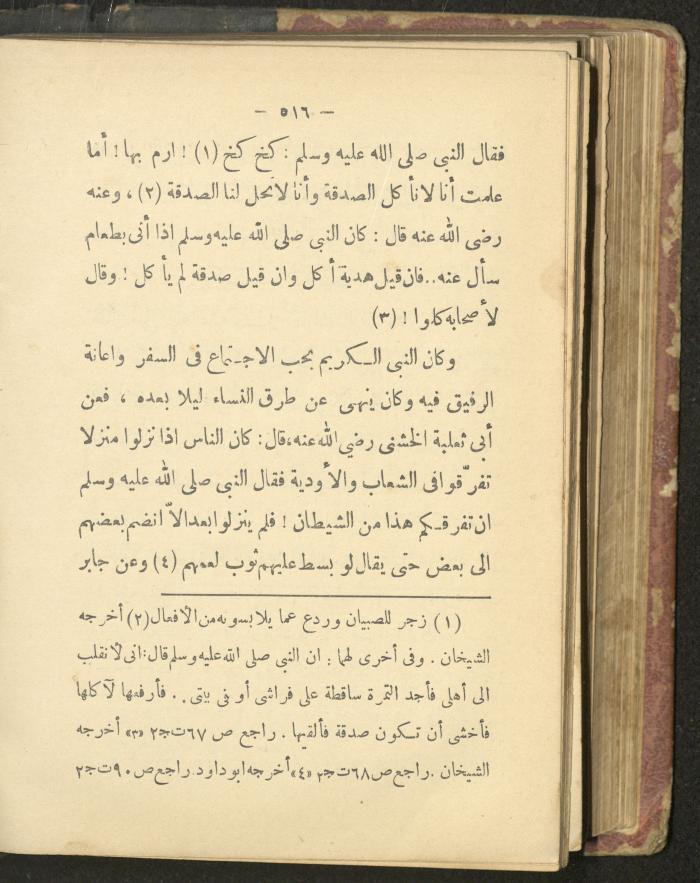 — ٥١٦ —
فقال النبى صلى الله عليه وسلم : كخ كخ (١) ! ارم بها ! أما
علمت أنا لانأ كل الصدقة وأنا لاتحل لنا الصدقة (٢) ، وعنه
رضى الله عنه قال : كان النبى صلى الله عليه وسلم اذا أتى بطعام
سأل عنه..فان قيل هدية أ كل وان قيل صدقة لم يأ كل ! وقال
لأ صحابه كلوا ! (٣)
وكان النبى الكريم يحب الاجتماع فى السفر واعانة
الرفيق فيه وكان ينهى عن طرق النساء ليلا بعده ، فعن
أبى ثعلبة الخشنى رضي الله عنه،قال: كان الناس اذا نزلوا منزلا
تفرّقوا فى الشعاب والأودية فقال النبى صلى الله عليه وسلم
ان تفرقكم هذا من الشيطان ! فلم ينزلوا بعد الاّ انضم بعضهم
الى بعض حتى يقال لو بسط عليهم ثوب لعمهم (٤) وعن جابر
(١) زجر للصبيان وردع عما يلابسونه من الأفعال (٢) أخرجه
الشيخان . وفى أخرى لهما : ان النبى صلى الله عليه وسلم قال:انى لأنقلب
الى أهلى فأجد التمرة ساقطة على فراشى أو فى بيتى . . فأرفعها لآكلها
فأخشى أن تكون صدقة فألقيها . راجع ص ٦٧ت ج٢ «٣» أخرجه
الشيخان .راجع ص ٦٨ت ج٢ «٤»أخرجه ابو داود.راجع ص ٩٠ت ج٢